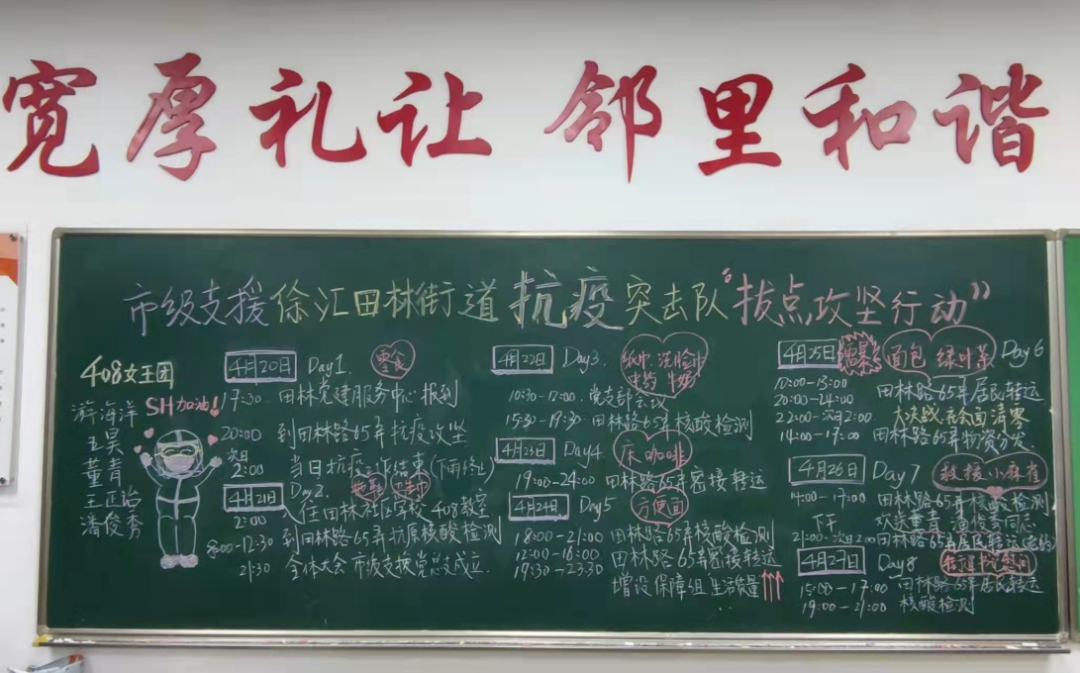 宽厚礼让 邻里和谐
市级支援徐汇田林街道抗疫突击队"拔点攻坚行动"
408女王团
游海洋
王昊
董青
王正治
潘俊秀
SH加油!
4月20日 Day1. 零食
17:30. 田林党建服务中心报到
20:00 到田林路65弄抗疫攻坚
次日
2:00 当日抗疫工作结束(下雨终止)
4月21日 Day2.
2:00 入住田林 408教室
8:00-12:30 到田林路65弄抗原核酸检测
21:30 全体大会 市级支援党总成立.
4月22日 Day3.
纸巾 洗脸巾
中药 牛奶
10:30-12:00. 党支部会议
15:30-19:30 田林路65弄核酸检测
4月23日 Day4 床 咖啡
19:00-24:00 田林路65弄密接转运
4月24日 Day5 方便面
18:00-21:00 田林路65弄核酸检测
12:00-16:00 田林路65弄密接转运
19:30-23:30 增设保障组 生活质量↑↑↑
4月25日 面包 绿叶菜 Day6
10:00-13:00 田林路65弄居民转运
20:00-24:00
22:00-次日2:00 大决战 社会面清零
14:00-17:00 田林路65弄物资分发
4月26日 Day7 救援小麻雀
14:00-17:00 田林路65弄核酸检测
下午 欢送董青、潘俊秀同志
21:00-次日2:00 田林路65弄居民转运
4月27日 Day8
15:00-17:00 田林路65弄居民转运
19:00-21:00 核酸检测